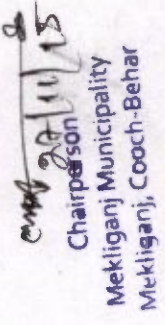 27/11/15
Chairperson
Mekliganj Municipality
Mekliganj, Cooch-Behar